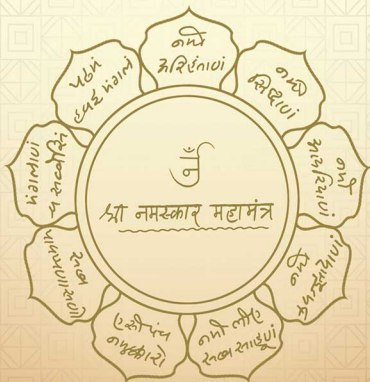 श्री नमस्कार महामंत्र
નમો
અરિહંતાણં
નમો
સિદ્ધાણં
નમો
આયરિયાણં
નમો
ઉવજ્ઝાયાણં
નમો લોએ
સવ્વ સાહૂણં
એસો પંચ
નમુક્કારો
સવ્વ
પાવપ્પણાસણો
મંગલાણં
ચ સવ્વેસિં
પઢમં
હવઈ મંગલં